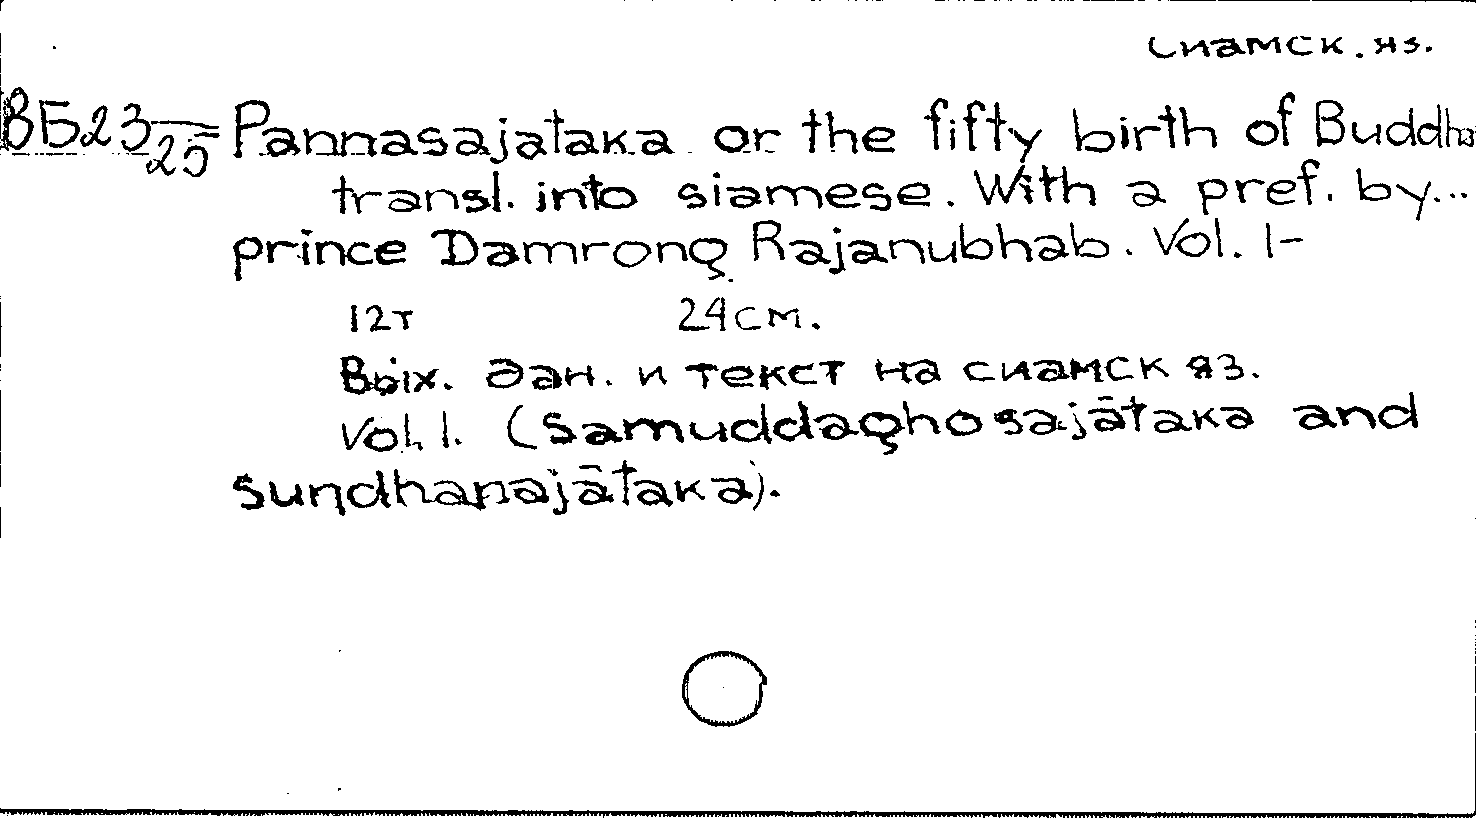 Сиамск. яз.
ВБ23/25 Pannasajataka or the fifty birth of Buddha
transl. into siamese. With a pref. by...
prince Damrong Rajanubhab. Vol. 1-
12т 24см.
Вых. дан. и текст на сиамск яз.
Vol. 1. (Samuddaghosajātaka and
sundhanajātaka).